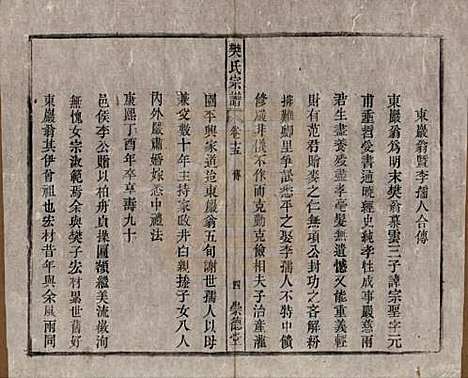 東巖翁暨李孺人合傳
東巖翁爲明末樊翁慕雲三子諱宗聖字元
甫重習愛書道曉經史純孝性成事嚴慈兩
君生盡養歿盡孝毫髮無遺憾又能重義輕
財有范君贈麥之仁無項公封功之吝解粉
排難鄉里爭訟悉平之娶李孺人不特中饋
修嚴非儀不作而克勤克儉相夫子治產瀧
國平興家道迨東巖翁五旬謝世孺人以母
兼父數十年主持家政井臼親操子女八人
內外嚴肅婚嫁悉中禮法
康熙丁酉年卒享壽九十
邑侯李公贈以柏舟貞操匾額繼美流徽洵
無愧女宗淑範焉余與樊子宏材累世舊好
東巖翁其伊曾祖也宏材昔年與余風雨同
樊氏宗譜
卷之十五 傳
四
崇德堂